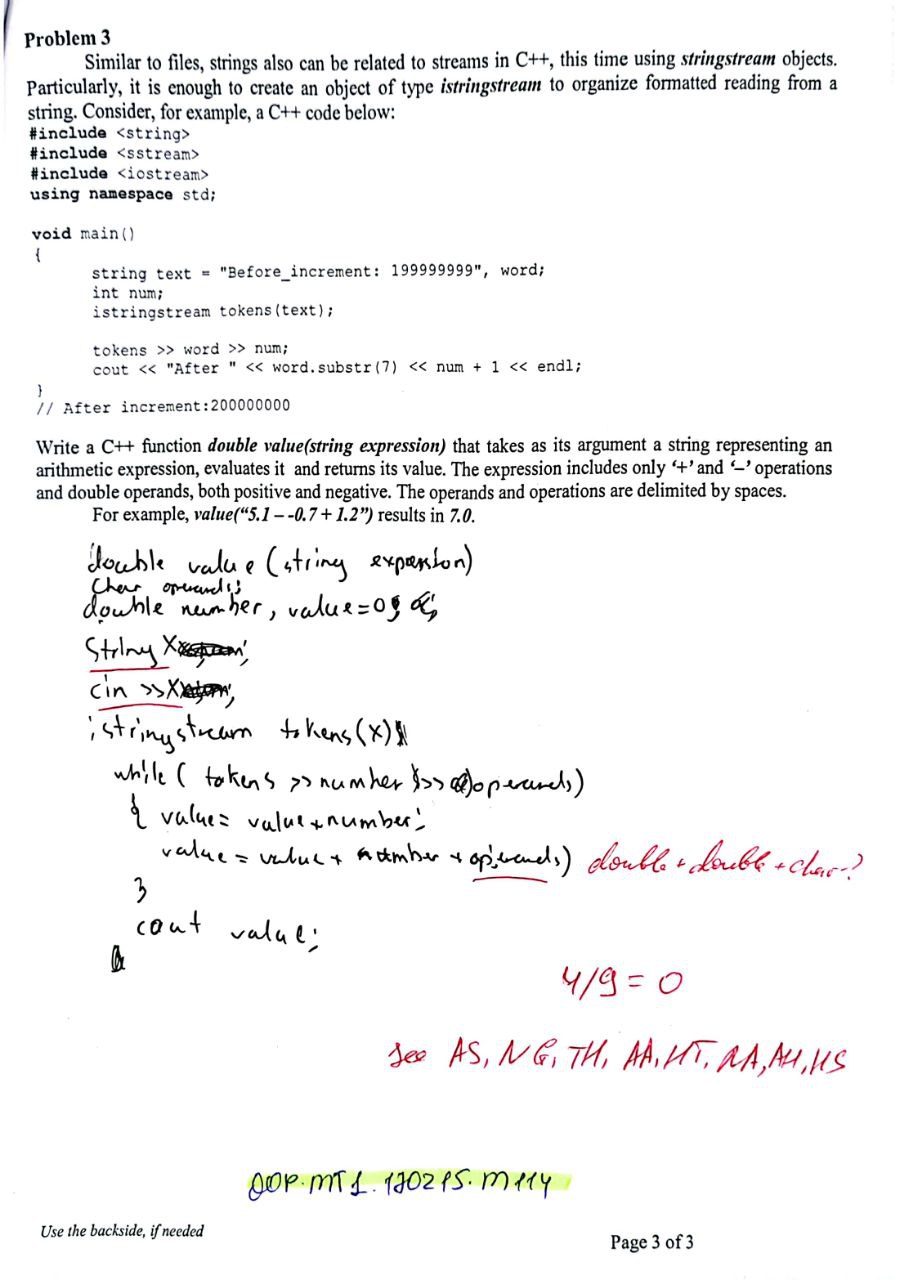 Problem 3
Similar to files, strings also can be related to streams in C++, this time using stringstream objects.
Particularly, it is enough to create an object of type istringstream to organize formatted reading from a
string. Consider, for example, a C++ code below:
#include <string>
#include <sstream>
#include <iostream>
using namespace std;
void main()
{
string text = "Before_increment: 199999999", word;
int num;
istringstream tokens(text);
tokens >> word >> num;
cout << "After " << word.substr(7) << num + 1 << endl;
}
// After increment:200000000
Write a C++ function double value(string expression) that takes as its argument a string representing an
arithmetic expression, evaluates it and returns its value. The expression includes only ‘+’ and ‘–’ operations
and double operands, both positive and negative. The operands and operations are delimited by spaces.
For example, value(“5.1 – -0.7 + 1.2”) results in 7.0.
double value (string
char
double number, value=0;
String X
cin >>X
istringstream tokens(x)
while ( tokens >> number >> operands)
{ value = value + number;
value = value + number + operands) double + double + char ?
}
cout value;
4/9 = 0
See AS, NG, TH, AA, HT, RA, AH, HS
OOP.MT1.170215.M114
Use the backside, if needed
Page 3 of 3